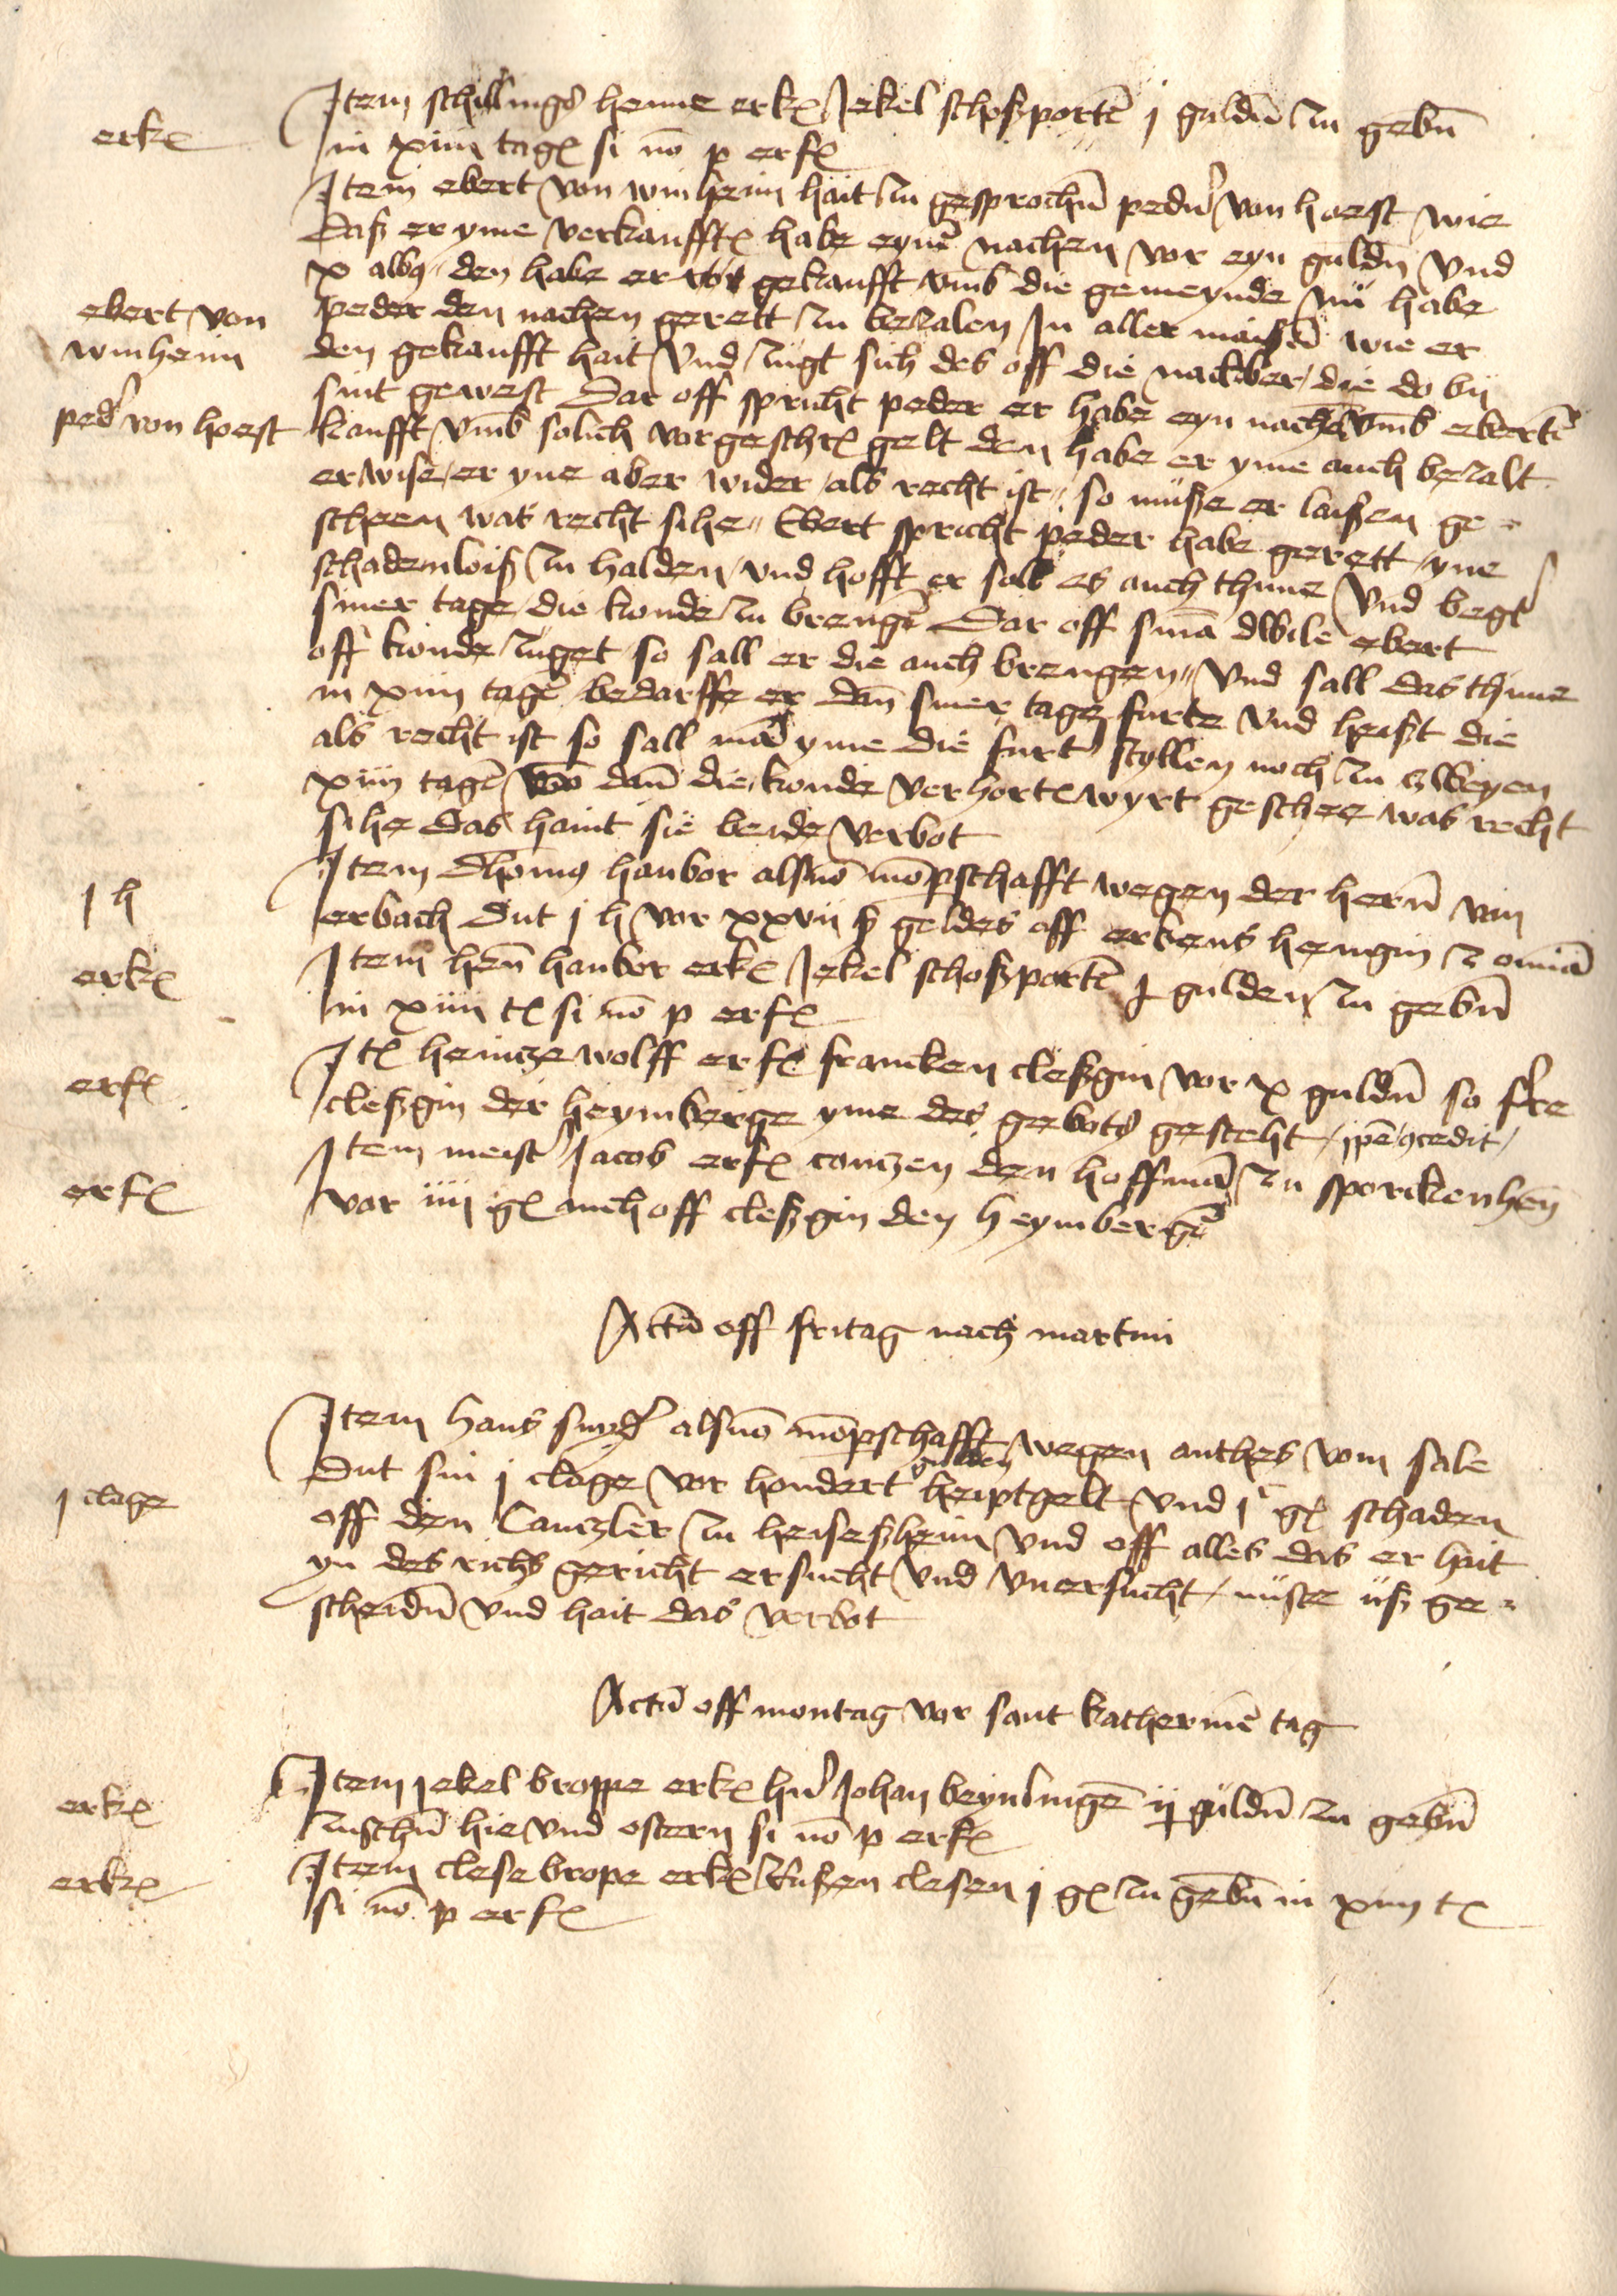 erk(
Item schillings henne erk( Jekel schoßportē j guldn̄ zu gebn̄
in xiiij tag( si nō p erf(
Item ebert von winheim hait zu gesprochn̄ pedn̄ von hoest wie
das er yme verkaufft( habe eynē nachen vor eyn guldn̄ vnd
x albꝯ den habe er gekaufft vmb die gemeynde nu habe
ebert von
winheim
peder den nachen gerett zu bezalen In aller maißen wie er
den gekaufft hait vnd zugt sich des off die nachber die do by
ped' von hoest
sint gewest Dar off spricht peder er habe eyn nachē vmb ebertē
kaufft vmb solich vorgeschr( gelt den habe er yme auch bezalt
erwise er yne aber wider als recht ist so muße er laißen ge=
scheen was recht sihe Ebert spricht peder habe gerett yne
schadenloiß zu halden vnd hofft er soll es auch thune vnd begt
siner tage die konde zu brengē Dar off sin̄a dwile ebert
off konde zuget so sall er die auch brengen vnd sall das thune
in xiiij tagē bedarffe er dan̄ siner tage furte vnd heist die
als recht ist so sall mā yme die furt styllen noch zu zweyen
xiiij tagē wō dan̄ die konde verhort( wyrt geschee was recht
sihe das haint sie beide verbot
j h
Item Dhomꝯ hanbor alsnō mōpschafft wegen der hern̄ von
erbach dut j h vor xxvij ß geldes off erkens hengin z omīa
erk(
Item hen̄ hanbor erk( Jekel schoßportē j gulden zu gebn̄
in xiiij t( si nō p erf(
erf(
It( heincze wolff erf( francken cleßgin vor x guldn̄ so fre
cleßgin der heymberge yme des gebots gesteht ip̄e ꝯcedit
erf(
Item meist' Jacob erf( conczen den hoffmā zu sporckenhen̄
vor iiij g( auch off cleßgin den heymbergē
Actū off fritag nach martini
Item hans snyd' alsnō mōpschafft wegen anthes vom sale
j clage
dut sin j clage vor hondert gulden heiptgelt vnd jᶜ g( schaden
off den Canczler zu heiseßheim vnd off alles das er hait
yn des richs gericht ersucht vnd vnersucht nuste uß ge=
scheidn̄ vnd hait das verbot
Actū off montag vor sant katherinē tag
erk(
Item jekel broppe erk( hn̄ Johan beynlingē ij guldn̄ zu gebn̄
zuschn̄ hie vnd ostern si nō p erf(
erk(
Item clese brope erk( clesen j g( zu gebn̄ in xiiij t(
si nō p erf(